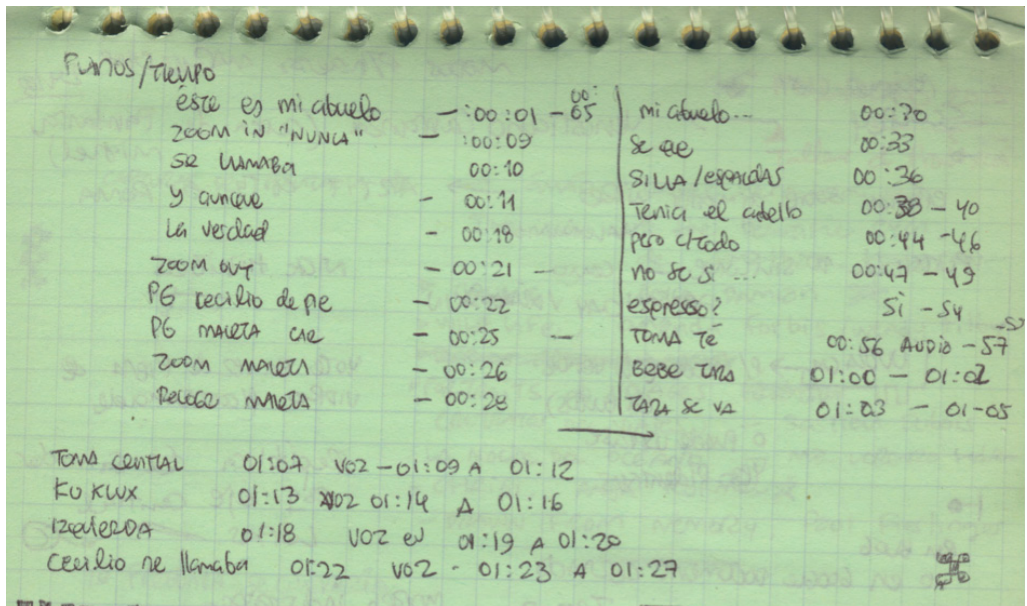 PLANOS/TIEMPO
éste es mi abuelo — :00:01 - 00:05
ZOOM IN "NUNCA" — :00:09
SE LLAMABA 00:10
y aunque — 00:11
La verdad — 00:18
ZOOM OUT — 00:21 —
PG cecilio de pe — 00:22
PG MALETA CAE — 00:25 —
ZOOM MALETA — 00:26
RECOGE MALETA — 00:28
mi abuelo... 00:30
se cae 00:33
SILLA/espaldas 00:36
Tenia el 00:38 - 40
pero c/todo 00:44 - 46
no se si ... 00:47 - 49
espresso? Si - 54
TOMA TÉ 00:56 AUDIO - 57
BEBE TAZA 01:00 — 01:02
TAZA SE VA 01:03 — 01-05
TOMA CENTRAL 01:07 VOZ - 01:09 A 01:12
KU KLUX 01:13 VOZ 01:14 A 01:16
IZQUIERDA 01:18 VOZ EN 01:19 A 01:20
Cecilio se llamaba 01:22 VOZ - 01:23 A 01:27